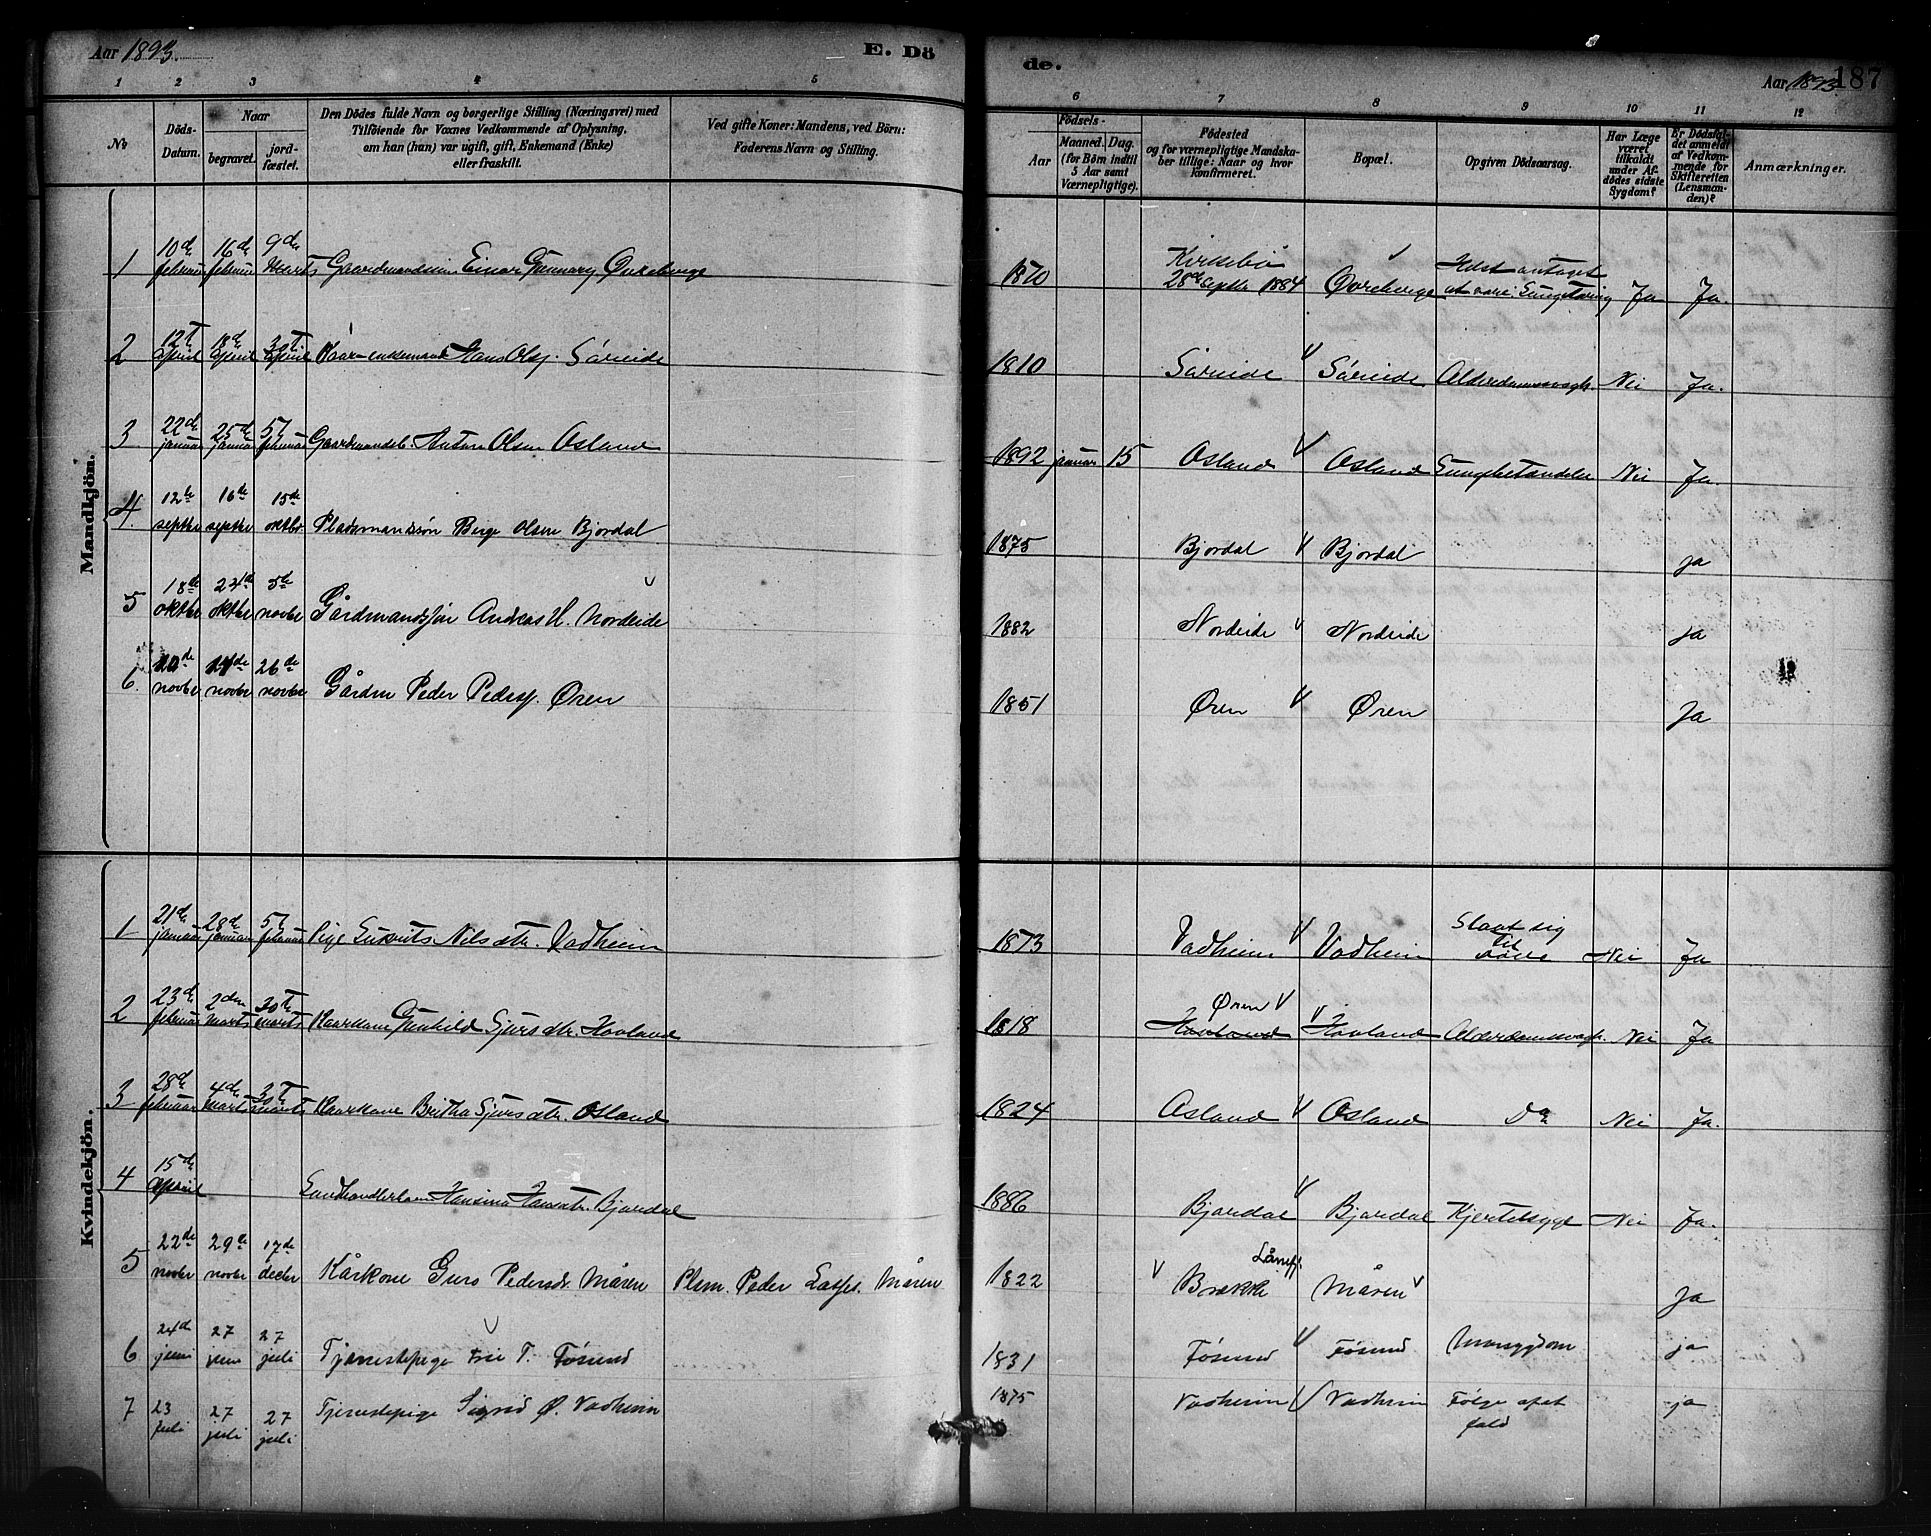 Aar 1893.
E. Dö
de.
Aar 1893.
187
1 2 3 4 5
6 7 8 9 10 11 12
No
Döds-Datum.
Naar
begravet.
jord-fæstet.
Den Dödes fulde Navn og borgerlige Stilling (Næringsvei) med
Tilföiende for Voxnes Vedkommende af Oplysning,
om han (hun) var ugift, gift, Enkemand (Enke)
eller fraskilt.
Ved gifte Koner: Mandens, ved Börn:
Faderens Navn og Stilling.
Födsels-
Aar
Maaned. Dag.
(for Börn indtil
5 Aar samt
Værnepligtige).
Födested
og for værnepligtige Mandska-
ber tillige: Naar og hvor
konfirmeret.
Bopæl.
Opgiven Dödsaarsag.
Har Læge
været
tilkaldt
under Af-
dödes sidste
Sygdom?
Er Dödsfal-
det anmeldt
af Vedkom-
mende for
Skifteretten
(Lensman-
den)?
Anmærkninger.
Mandkjön.
1 10de februar 16de februar 9de Marts Gaardmandssøn Einar Gunnarsj Øvreberge 1870 Kirkebø 28de septbr 1884 Øvreberge Helst antaget at være Lungetæring Ja Ja.
2 12t april 18de april 30t april Kaar-enkemand Hans Olsj. Söreide 1810 Söreide Söreide Alderdomssvagh. Nei Ja.
3 22de januar 25de januar 5t februar Gaardmandsb. Anton Olsen Osland 1892 januar 15 Osland Osland Lungebetændelse Nei Ja
4. 12te septbr 16de septbr 15de oktbr Pladsmandssön Berge Olsen Bjordal 1875 Bjordal Bjordal ja
5 18de oktbr 24de oktbr 5de novbr Gårdmandssön Andreas H. Nordeide 1882 Nordeide Nordeide ja
6. novbr novbr 26de novbr Gårdm Peder Pedersj. Øren 1851 Øren Øren Ja
Kvindekjön.
1 21de januar 28de januar 5t februar Pige Nilsdtr. Vadheim 1873 Vadheim Vadheim Slaat sig til Nei Ja
2 23de februar 2den Marts 30t marts Kaarkone Gunhild Sjursdtr. Hovland 1818 Øren Hovland Hovland Alderdomssvagh. Nei Ja
3 28de februar 4de Marts 30t marts Kaarkone Britha Sjursdtr. Osland 1824 Osland Osland Do Nei Ja.
4 15de April Landhandlerbarn Hansina Hansdtr. Bjordal 1886 Bjordal Bjordal Kjertelsyge Nei Ja.
5 22de novbr 29de novbr 17de decbr Kårkone Guro Pedersdr. Måren Plsm. Peder Lasses. Måren 1822 Brække Måren ja
6 24de juni 27 juni 27 juli Tjenestepige T. Fösund 1831 Fösund Fösund ja
7 23 juli 27 juli 27 juli Tjenestepige Sigrid Ø. Vadheim 1875 Vadheim Vadheim Følge af et fald ja